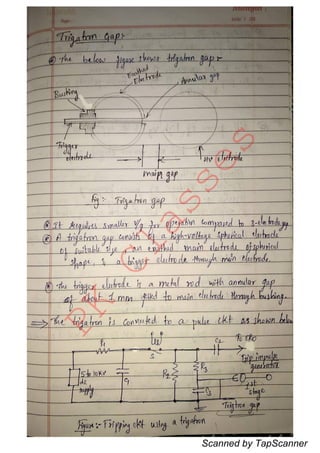 Trigatron Gap:-
⊛ The below figure shows trigatron gap:-
Earthed
Electrode
Annular gap
Bushing
Trigger
electrode
main gap
HV electrode
fig:- Trigatron gap
⊛ It requires smaller V/g for operation compared to 3-electrode gap
⊛ A trigatron gap consists of a high-voltage spherical electrode
of suitable size, an earthed main electrode of spherical
shape, & a trigger electrode through main electrode.
⊛ The trigger electrode is a metal rod with annular gap
of about 1 mm fitted to main electrode through bushing.
⇒ The trigatron is connected to a pulse ckt as shown below
R1
S
C2
To CRO
Trip impulse
generator
5 to 10 kV
dc
supply
C1
R2
R3
C3
1st
stage
Trigatron gap
Figure:- Tripping ckt using a trigatron
Classes
Scanned by TapScanner